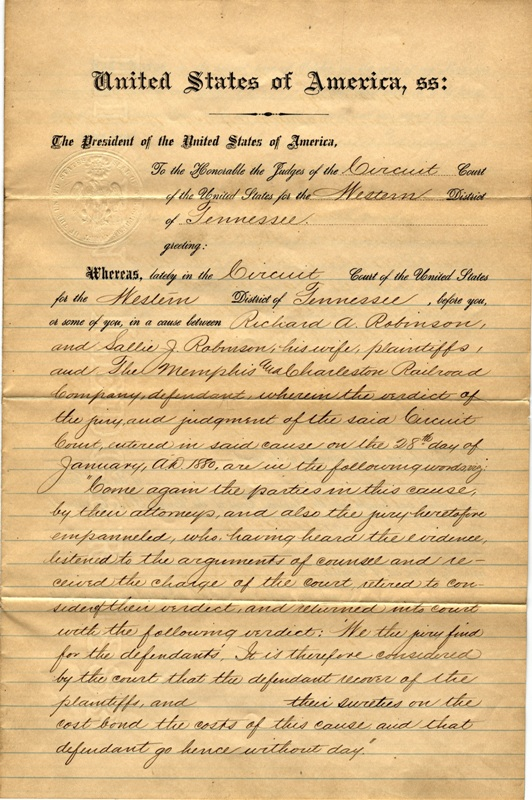 United States of America, ss:
The President of the United States of America,
To the Honorable the Judges of the Circuit Court
of the United States for the Western District
of Tennessee.
greeting:
Whereas, lately in the Circuit Court of the United States
for the Western District of Tennessee, before you,
or some of you, in a cause between Richard A. Robinson,
and Sallie J. Robinson, his wife, plaintiffs,
and The Memphis and Charleston Railroad
Company, defendant, wherein the verdict of
the jury, and judgment of the said Circuit
Court, entered in said cause on the 28th day of
January, A.D. 1880, are in the following words, viz:
"Come again the parties in this cause,
by their attorneys, and also the jury heretofore
empanneled, who, having heard the evidence,
listened to the arguments of counsel and re-
ceived the charge of the court, retired to con-
sider of their verdict, and returned into court
with the following verdict: 'We the jury find
for the defendants'. It is therefore considered
by the court that the defendant recover of the
plaintiffs, and their sureties on the
cost bond the costs of this cause and that
defendant go hence without day."